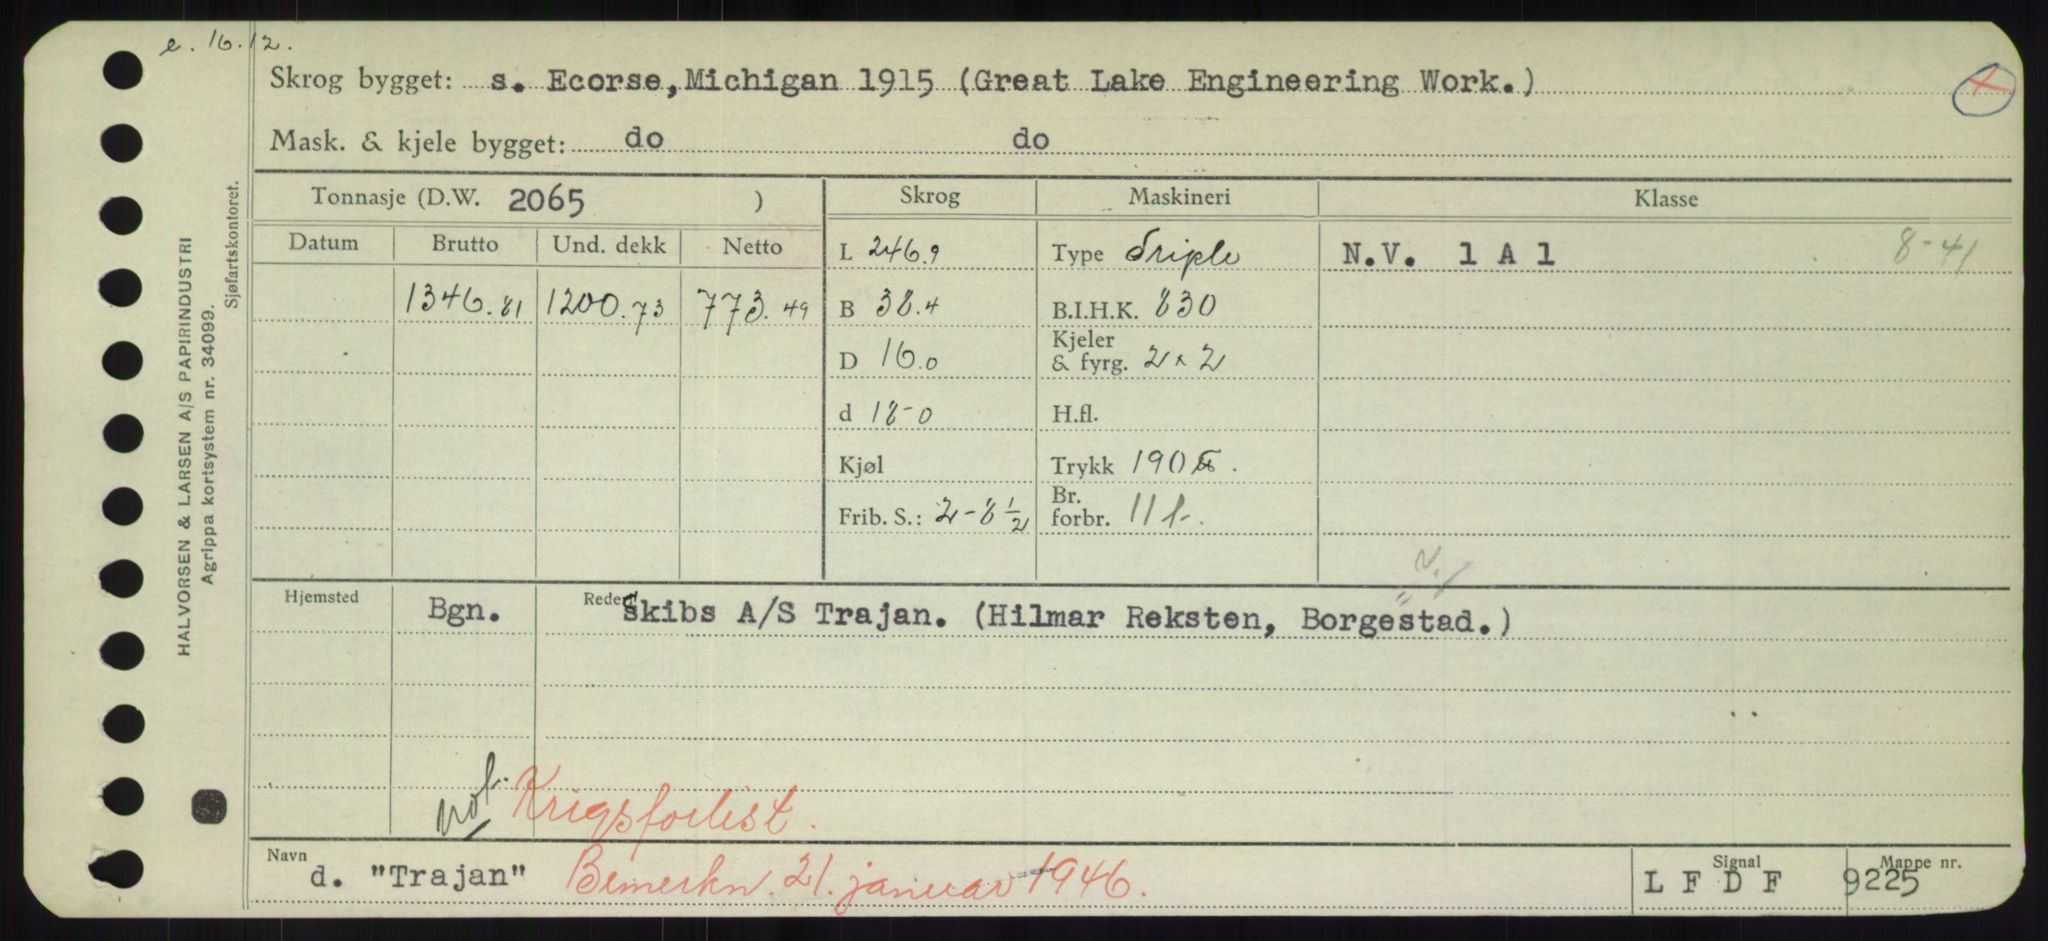 e. 16.12.
Skrog bygget: s. Ecorse, Michigan 1915 (Great Lake Engineering Work.)
Mask. & kjele bygget: do do
Tonnasje (D.W. 2065 ) Skrog Maskineri Klasse
Datum Brutto Und. dekk Netto L 246.9 Type Triple N.V. 1 A 1 8-41
1346.81 1200.73 773.49 B 38.4 B.I.H.K. 830
D 16.0 Kjeler & fyrg. 2 x 2
d 18-0 H.fl.
Kjøl Trykk 190
Frib. S.: 2-8 1/2 Br. forbr. 11 t.
Hjemsted Bgn. Rederi Skibs A/S Trajan. (Hilmar Reksten, Borgestad.)
not. Krigsforlist.
Navn d. "Trajan" Bemerkn. 21. januar 1946. Signal L F D F Mappe nr. 9225
HALVORSEN & LARSEN A/S PAPIRINDUSTRI
Agrippa kortsystem nr. 34099.
Sjøfartskontoret.